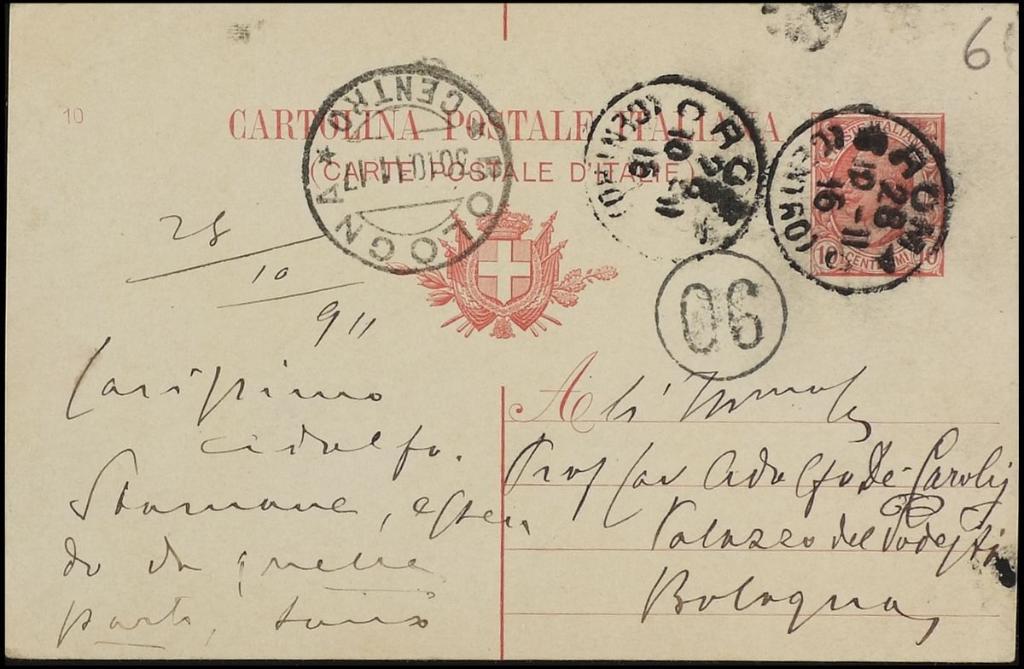 6
10
CARTOLINA POSTALE ITALIANA
(CARTE POSTALE D'ITALIE)
BOLOGNA * CENTRO *
30 10 11 17
ROMA
(CENTRO)
10-11
16
ROMA
28
10-11
16
(CENTRO)
POSTE ITALIANE
10 CENTESIMI 10
06
28
10
911
Carissimo
Adolfo.
Stamane, essen
do da quelle
parti, sono
All'
Prof Cav Adolfo De Carolis
Palazzo del Podestà
Bologna